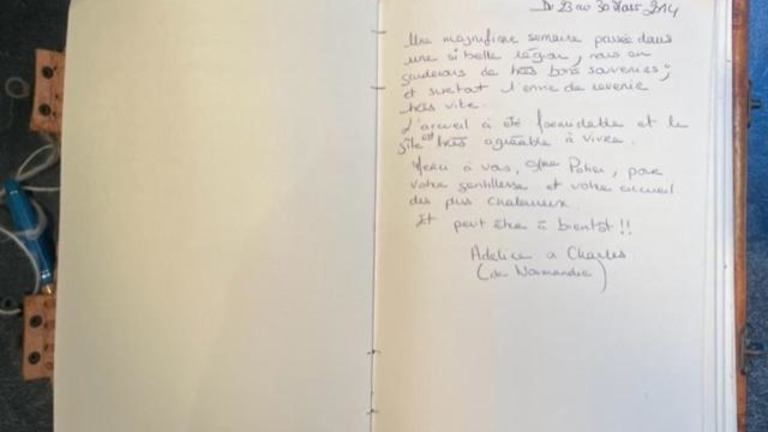 Du 23 au 30 Mars 2014
Une magnifique semaine passée dans
une si belle région, nous en
garderons de très bons souvenirs,
et surtout l'envie de revenir
très vite.
L'accueil à été formidable et le
gîte est très agréable à vivre.
Merci à vous, Mme Potier, pour
votre gentillesse et votre accueil
des plus chaleureux.
Et peut être à bientôt !!
Adeline & Charles
(de Normandie)